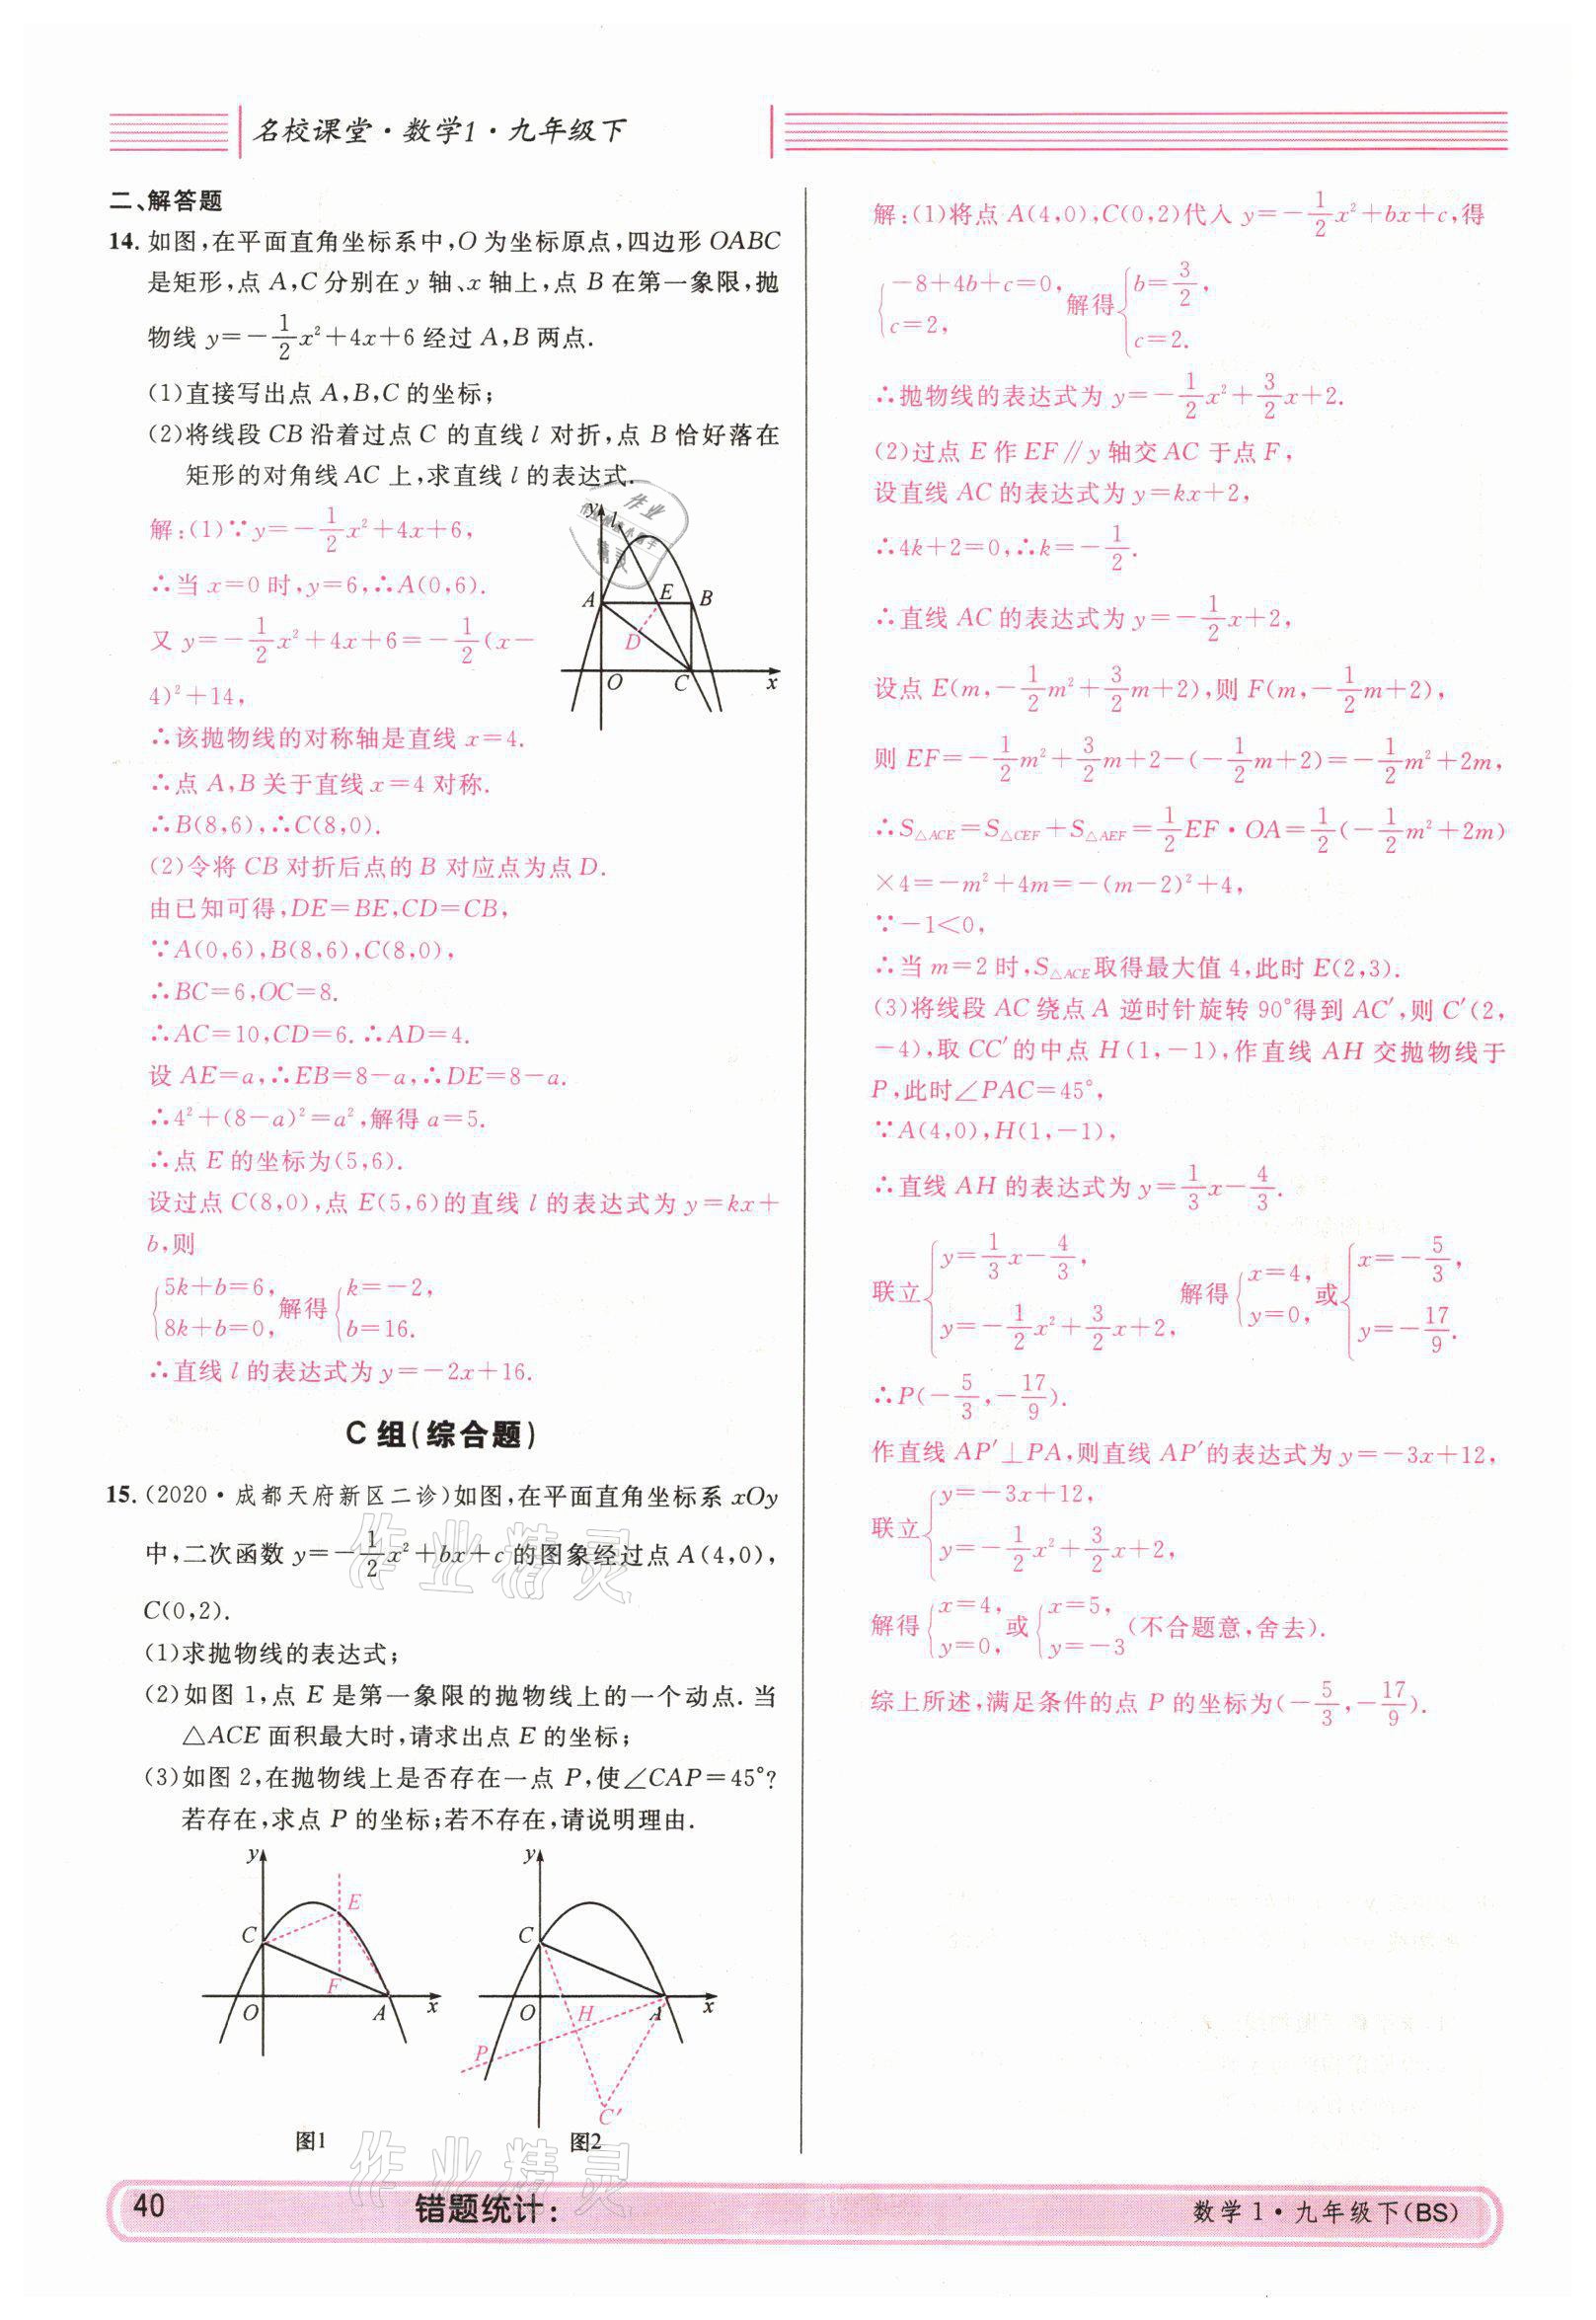 名校课堂·数学1·九年级下
二、解答题
14. 如图,在平面直角坐标系中,O为坐标原点,四边形OABC
是矩形,点A,C分别在y轴、x轴上,点B在第一象限,抛
物线y=-1/2x²+4x+6经过A,B两点.
(1)直接写出点A,B,C的坐标;
(2)将线段CB沿着过点C的直线l对折,点B恰好落在
矩形的对角线AC上,求直线l的表达式.
解:(1)∵y=-1/2x²+4x+6,
∴当x=0时,y=6,∴A(0,6).
又y=-1/2x²+4x+6=-1/2(x-
4)²+14,
∴该抛物线的对称轴是直线x=4.
∴点A,B关于直线x=4对称.
∴B(8,6),∴C(8,0).
y l
A E B
D
O C x
(2)令将CB对折后点的B对应点为点D.
由已知可得,DE=BE,CD=CB,
∵A(0,6),B(8,6),C(8,0),
∴BC=6,OC=8.
∴AC=10,CD=6.∴AD=4.
设AE=a,∴EB=8-a,∴DE=8-a.
∴4²+(8-a)²=a²,解得a=5.
∴点E的坐标为(5,6).
设过点C(8,0),点E(5,6)的直线l的表达式为y=kx+
b,则
{5k+b=6, 8k+b=0, 解得{k=-2, b=16.
∴直线l的表达式为y=-2x+16.
C组(综合题)
15. (2020·成都天府新区二诊)如图,在平面直角坐标系xOy
中,二次函数y=-1/2x²+bx+c的图象经过点A(4,0),
C(0,2).
(1)求抛物线的表达式;
(2)如图1,点E是第一象限的抛物线上的一个动点.当
△ACE面积最大时,请求出点E的坐标;
(3)如图2,在抛物线上是否存在一点P,使∠CAP=45°?
若存在,求点P的坐标;若不存在,请说明理由.
y E C F O A x
图1
y C O H A x P C′
图2
解:(1)将点A(4,0),C(0,2)代入y=-1/2x²+bx+c,得
{-8+4b+c=0, c=2, 解得{b=3/2, c=2.
∴抛物线的表达式为y=-1/2x²+3/2x+2.
(2)过点E作EF∥y轴交AC于点F,
设直线AC的表达式为y=kx+2,
∴4k+2=0,∴k=-1/2.
∴直线AC的表达式为y=-1/2x+2,
设点E(m,-1/2m²+3/2m+2),则F(m,-1/2m+2),
则EF=-1/2m²+3/2m+2-(-1/2m+2)=-1/2m²+2m,
∴S△ACE=S△CEF+S△AEF=1/2EF·OA=1/2(-1/2m²+2m)
×4=-m²+4m=-(m-2)²+4,
∵-1<0,
∴当m=2时,S△ACE取得最大值4,此时E(2,3).
(3)将线段AC绕点A逆时针旋转90°得到AC′,则C′(2,
-4),取CC′的中点H(1,-1),作直线AH交抛物线于
P,此时∠PAC=45°,
∵A(4,0),H(1,-1),
∴直线AH的表达式为y=1/3x-4/3.
联立{y=1/3x-4/3, y=-1/2x²+3/2x+2, 解得{x=4, y=0, 或{x=-5/3, y=-17/9.
∴P(-5/3,-17/9).
作直线AP′⊥PA,则直线AP′的表达式为y=-3x+12,
联立{y=-3x+12, y=-1/2x²+3/2x+2,
解得{x=4, y=0, 或{x=5, y=-3 (不合题意,舍去).
综上所述,满足条件的点P的坐标为(-5/3,-17/9).
作业精灵
作业精灵
40
错题统计:
数学1·九年级下(BS)